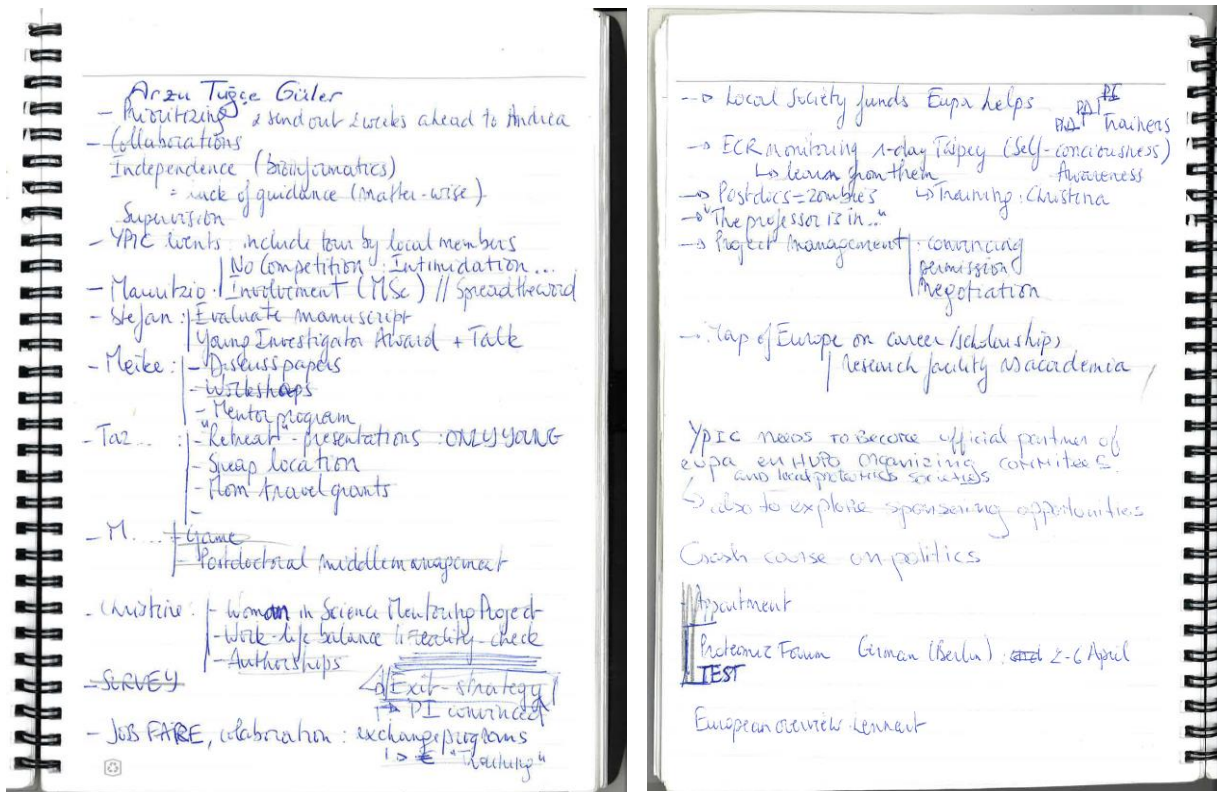 Arzu Tuğçe Güler
- Prioritizing & send out 2 weeks ahead to Andrea
- Collaborations
Independence (bioinformatics)
= lack of guidance (matter-wise)
Supervision
- YPIC events: include tour by local members
No Competition: Intimidation...
- Mauritzio: Involvement (MSc) // Spread the word
- Stefan: Evaluate manuscript
Young Investigator Award + Talk
- Meike: - Discuss papers
- Workshops
- Mentor program
- Taz... : - "Retreat" - presentations: ONLY YOUNG
- Swap location
- Mom travel grants
-
- M..... - Game
- Postdoctoral middlemanagement
- Christine: - Woman in Science Mentoring Project
- Work-life balance // reality-check
- Authorships
- SURVEY
Exit-strategy
PI convinced
- JOB FAIRE, colaboration: exchange programs
€ "Training"
--> Local Society funds Eupa helps
PI
Trainers
-> ECR monitoring 1-day (Self-conciousness)
↳ learn from them Awareness
-> Postdocs = zombies ↳ Training: Christina
-> "The professor is in..."
-> Project management: convincing
permission
negotiation
Map of Europe on career/scholarships
research facility vs academia
YPIC needs to become official partner of
eupa en HUPO organizing commitees.
and local proteomics societies
↳ also to explore sponsering opportunities
Crash course on politics
Appartment
Proteomic Forum German (Berlin): 2-6 April
TEST
European overview Lennart